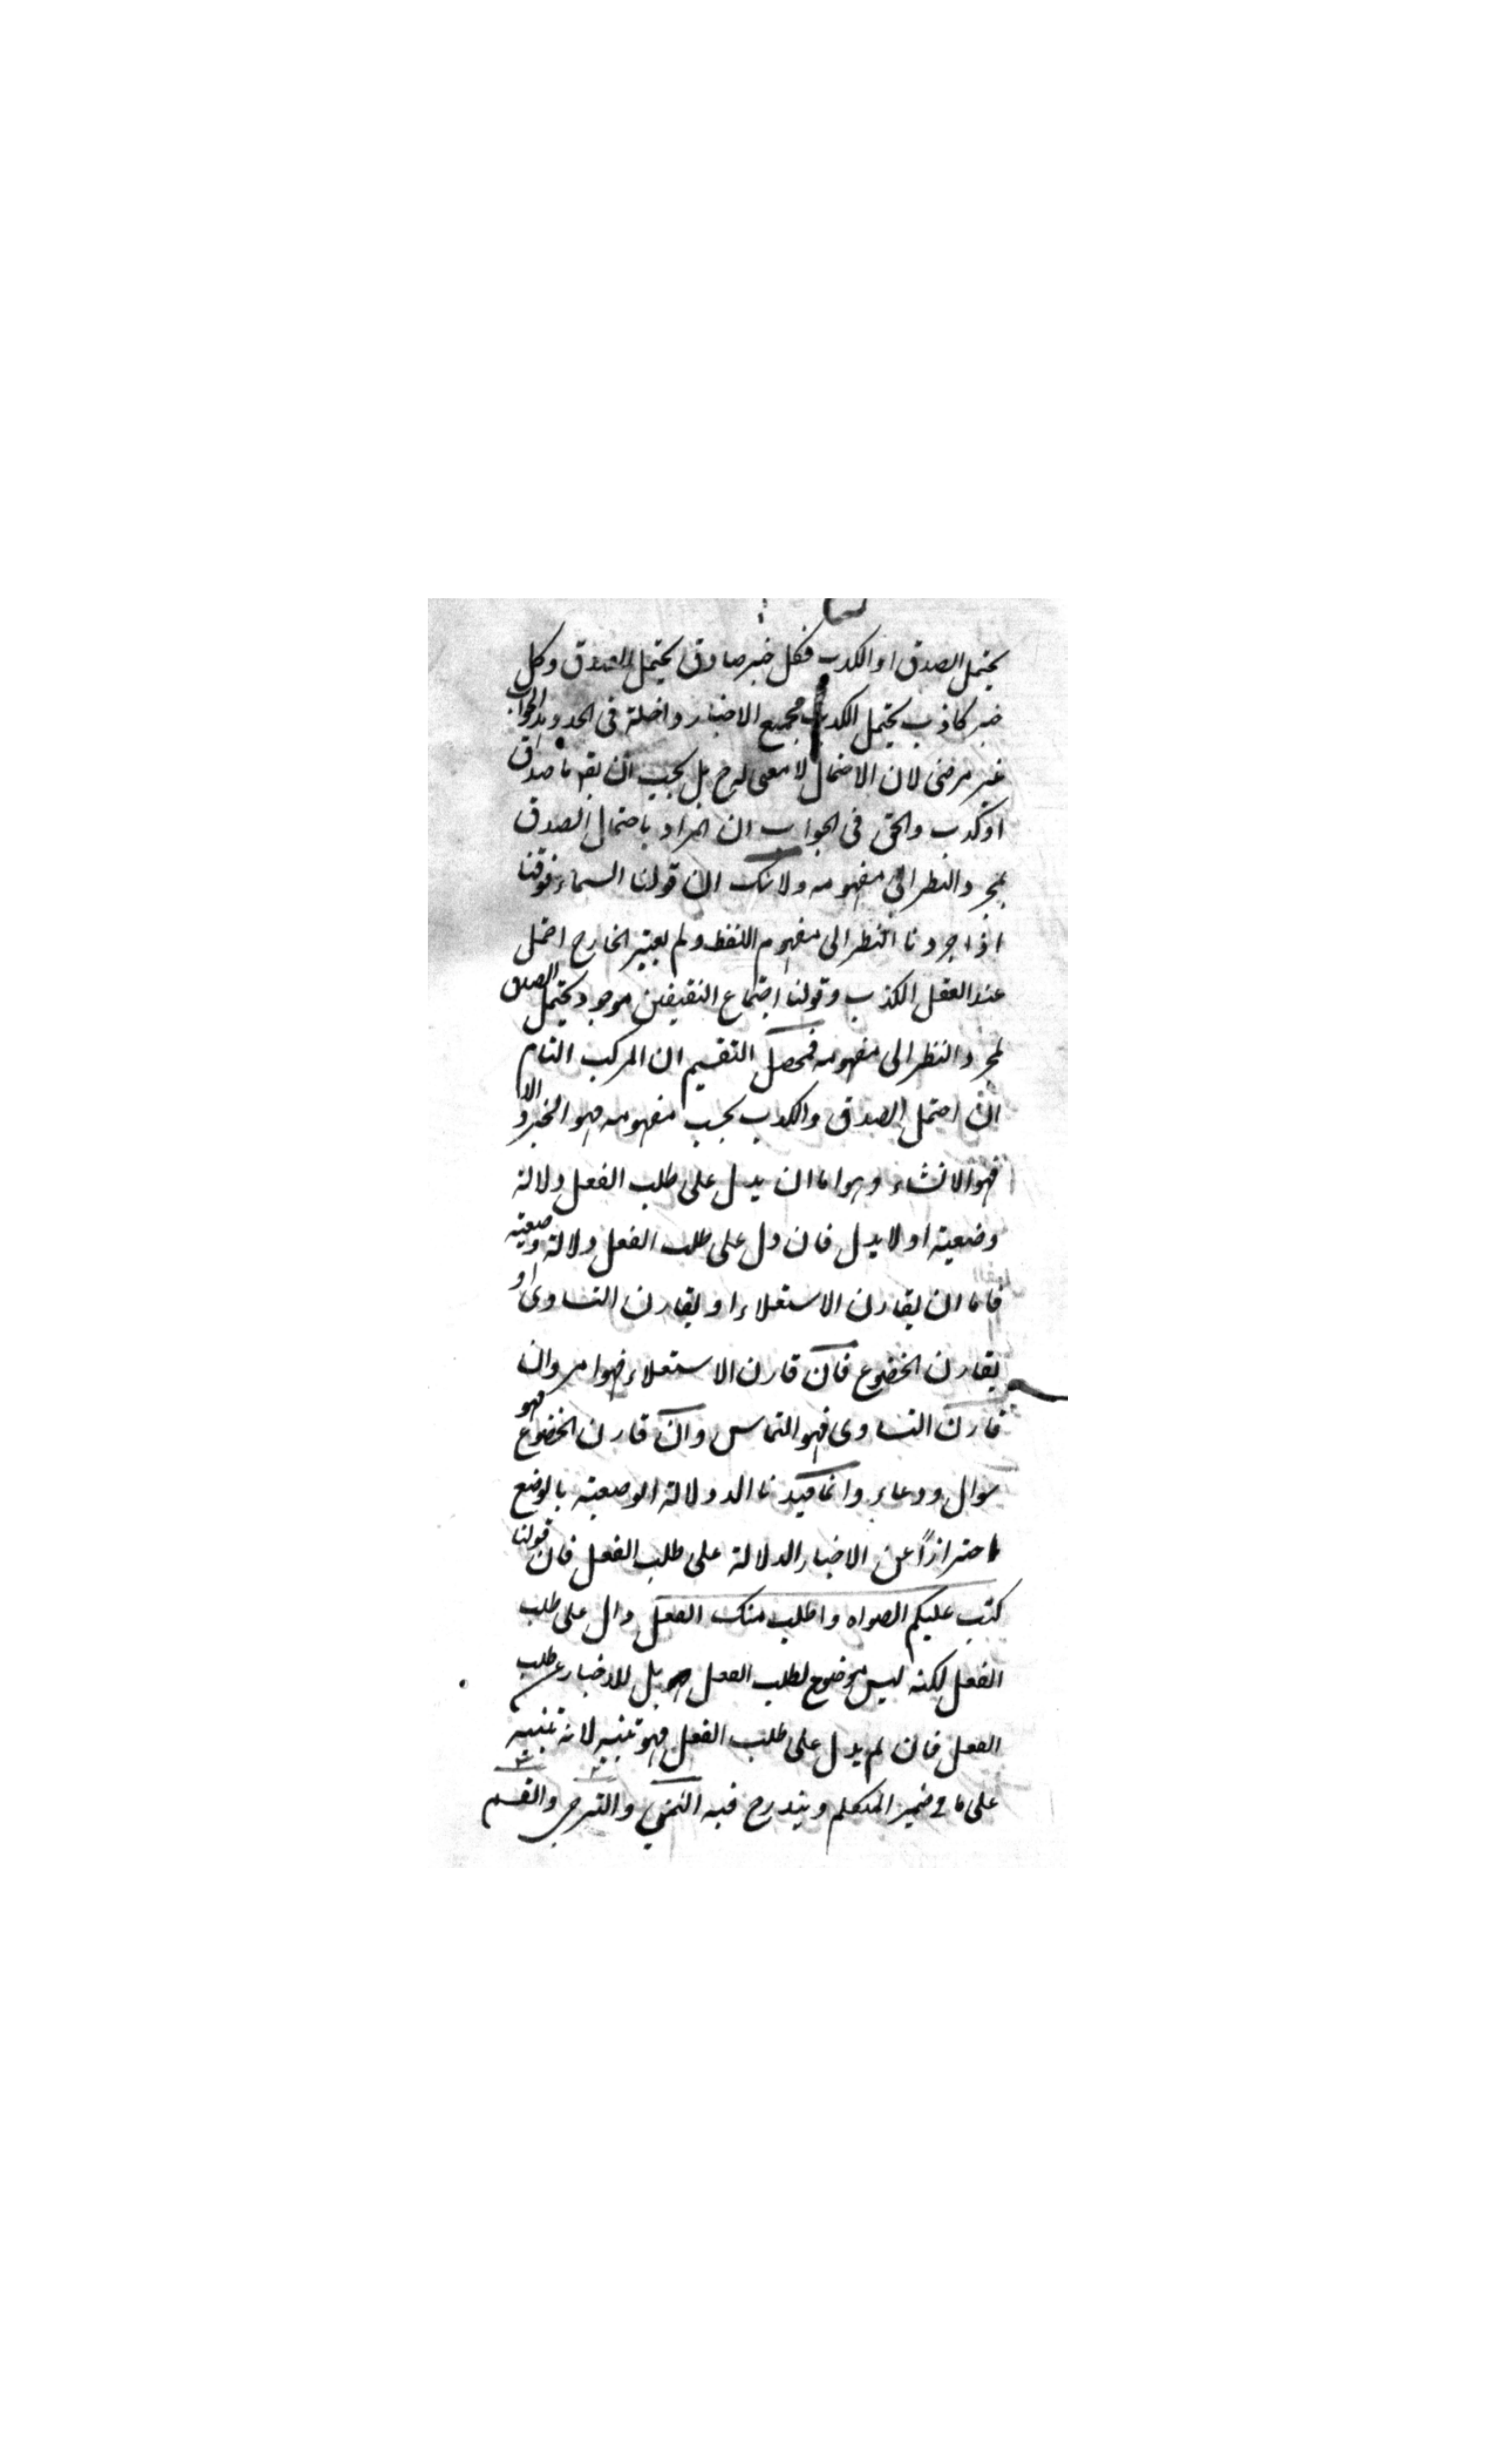 يحتمل الصدق او الكذب فكل خبر صادق يحتمل الصدق وكل
خبر كاذب يحتمل الكذب فجميع الاخبار داخلة فى الحد وهذا الجواب
غير مرضى لان الاحتمال لا معنى له ح بل يجب ان يقم ما صدق
او كذب والحق فى الجواب ان المراد باحتمال الصدق
بمجرد النظر الى مفهومه ولا شك ان قولنا السماء فوقنا
اذا جردنا النظر الى مفهوم اللفظ ولم يعتبر الخارج احتمل
عند العقل الكذب وقولنا اجتماع النقيضين موجود يحتمل الصدق
لمجرد النظر الى مفهومه فمحصل التقسيم ان المركب التام
ان احتمل الصدق والكذب بحسب مفهومه فهو الخبر والا
فهو الانشاء وهو اما ان يدل على طلب الفعل دلالة
وضعية او لا يدل فان دل على طلب الفعل دلالة وضعية
فاما ان يقارن الاستعلاء او يقارن التساوى او
يقارن الخضوع فان قارن الاستعلاء فهو امر وان
قارن التساوى فهو التماس وان قارن الخضوع فهو
سوال ودعاء وانما قيدنا الد دلالة الوضعية بالوضع
احترازاً عن الاخبار الدلالة على طلب الفعل فان قولنا
كتب عليكم الصواه واطلب منك الفعل دال على طلب
الفعل لكنه ليس موضوع لطلب الفعل بل للاخبار عن طلب
الفعل فان لم يدل على طلب الفعل فهو تنبيه لانه تنبيه
على ما فى ضمير المتكلم ويندرج فيه التمنى والترجى والقسم